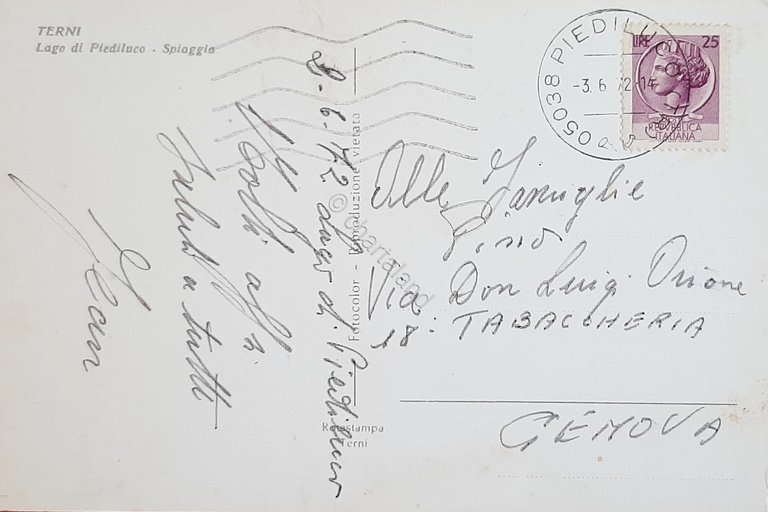 TERNI
Lago di Piediluco - Spiaggia
05038 PIEDILUCO
-3.6.72-14
LIRE 25
REPUBBLICA
ITALIANA
2-6-72 Lago di Piediluco
saluti a tutti
Alle Famiglie
Via Don Luigi Orione
18: TABACCHERIA
GENOVA
Fotocolor - Riproduzione vietata
Rotostampa
Terni
© cartaland